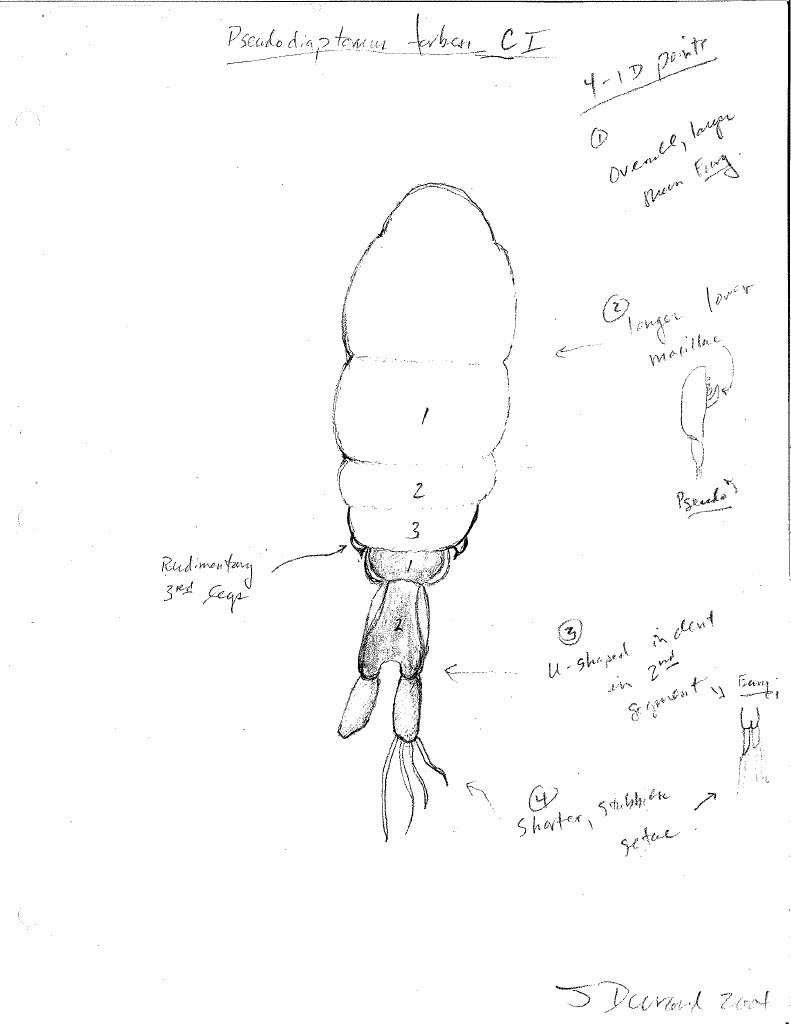 Pseudodiaptomus forbesi CI
4-ID points
①
Overall, larger
than Eury.
②
larger lower
maxillae
1
Pseudo
2
3
Rudimentary
3rd legs
1
2
③
U-shaped indent
in 2nd
segment
Eury.
④
Shorter, stubbier
setae
J Durand 2001